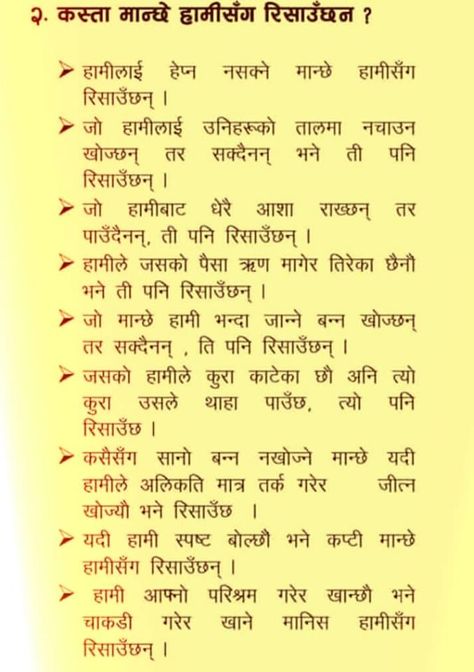 २. कस्ता मान्छे हामीसँग रिसाउँछन ?
➢ हामीलाई हेप्न नसक्ने मान्छे हामीसँग
रिसाउँछन् ।
➢ जो हामीलाई उनिहरूको तालमा नचाउन
खोज्छन् तर सक्दैनन् भने ती पनि
रिसाउँछन् ।
➢ जो हामीबाट धेरै आशा राख्छन् तर
पाउँदैनन्, ती पनि रिसाउँछन् ।
➢ हामीले जसको पैसा ऋण मागेर तिरेका छैनौ
भने ती पनि रिसाउँछन् ।
➢ जो मान्छे हामी भन्दा जान्ने बन्न खोज्छन्
तर सक्दैनन् , ति पनि रिसाउँछन् ।
➢ जसको हामीले कुरा काटेका छौ अनि त्यो
कुरा उसले थाहा पाउँछ, त्यो पनि
रिसाउँछ ।
➢ कसैसँग सानो बन्न नखोज्ने मान्छे यदी
हामीले अलिकति मात्र तर्क गरेर जीत्न
खोज्यौ भने रिसाउँछ ।
➢ यदी हामी स्पष्ट बोल्छौ भने कप्टी मान्छे
हामीसँग रिसाउँछन् ।
➢ हामी आफ्नो परिश्रम गरेर खान्छौ भने
चाकडी गरेर खाने मानिस हामीसँग
रिसाउँछन् ।